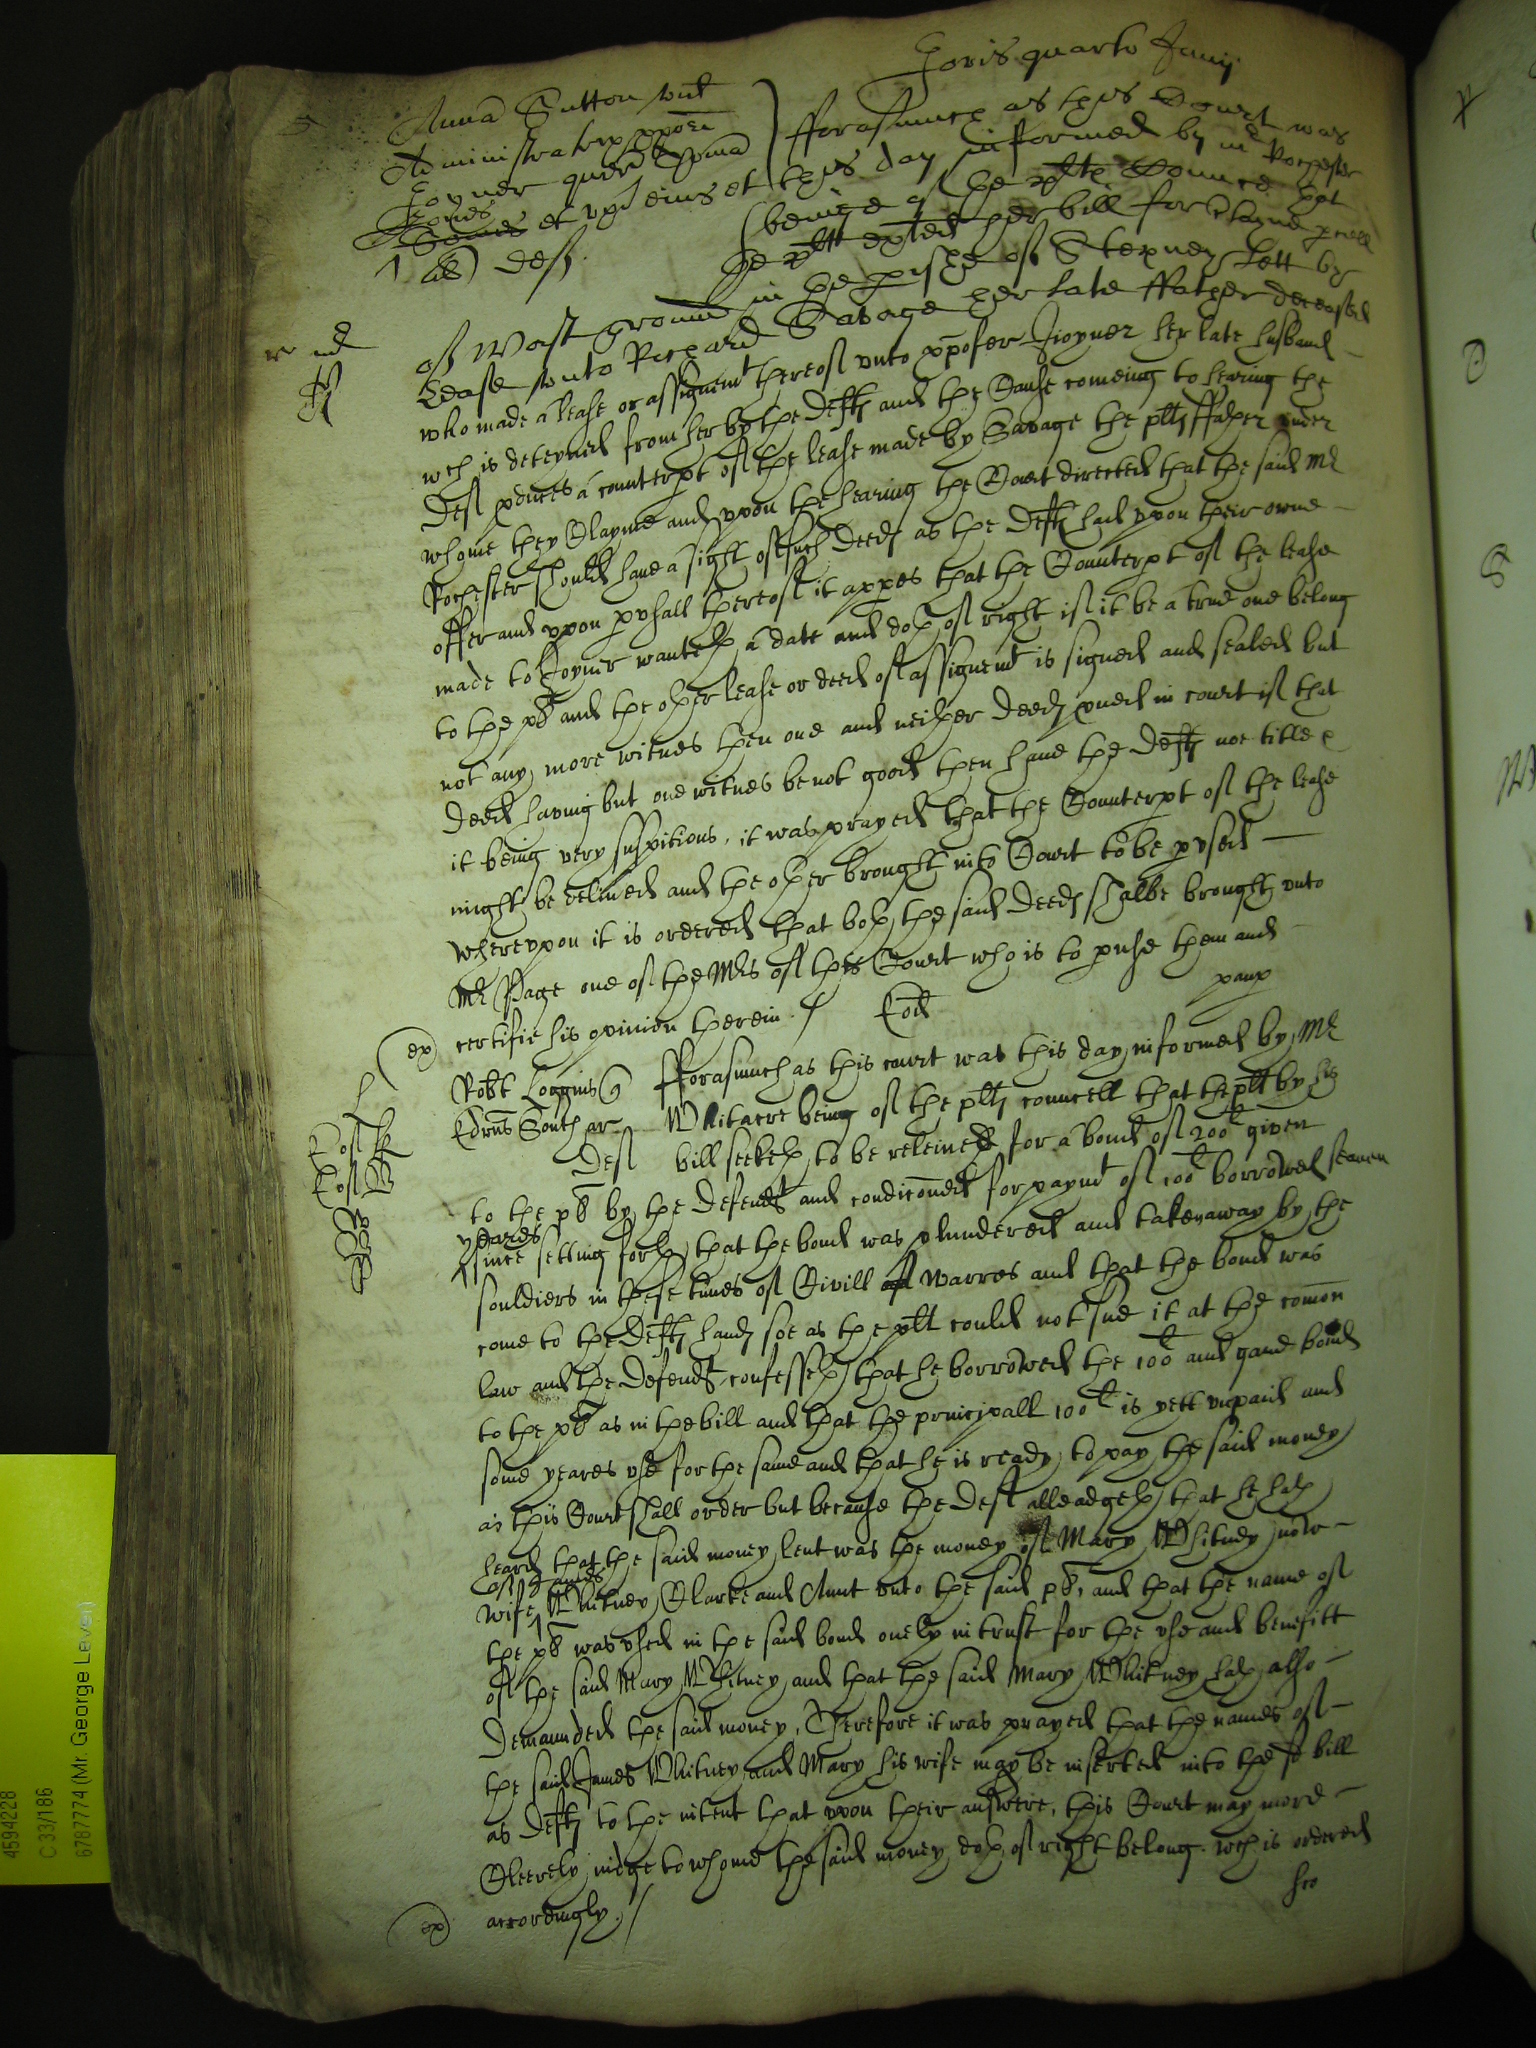 Jovis quarto Junij
Anna Sutton vid
Administratrix xpōferi
Joyner quer Thoma
Jones
Jones et ux eius et
al deft
fforasmuch as this Court was
this day informed by mr Rochester
being of the plts Councell that
the plt exhited her bill for a peece
of Wast ground in the pishe of Stepney Lett by
Lease unto Richard Savage her late ffather deceased
who made a lease or assignemt thereof unto xpofer Jioyner her late husband
wch is deteyned from her by the defts and the Cause comeing to hearing the
deft pduces a counterpt of the lease made by Savage the plts ffather under
whome they Clayme and upon the hearing the Court directed that the said Mr
Rochester should have a sight of such deeds as the defts had upon their owne
offer and upon pusall thereof it appes that the Counterpt of the lease
made to Joyner wanteth a date and doth of right if it be a true one belong
to the pt and the other lease or deed of assignemt is signed and sealed but
not any more witnes then one and neither deeds pued in court if that
deed having but one witnes be not good then have the defts noe title &
it being very suspitious, it was prayed that the Counterpt of the lease
might be delived and the other brought into Court to be pused
whereupon it is ordered that both the said deeds shalbe brought unto
Mr Page one of the Mrs of this Court who is to puse them and
certifie his opinion therein./
ex
Eod
paup
Robt Loggins q
Edrus South ar
Deft
fforasmuch as this court was this day informed by Mr
Whitacre being of the plts councell that the plt by his
bill seeketh to be releived for a bond of 200l given
to the pt by the defendt and condiconed for paymt of 100l borrowed seaven
yeares
since setting forth that the bond was plundered and taken away by the
souldiers in these times of Civill warres and that the bond was
come to the defts hands soe as the plt could not sue it at the comon
law and the defendt confesseth that he borrowed the 100l and gave bond
to the pt as in the bill and that the principall 100l is yett unpaid and
some yeares use for the same and that he is ready to pay the said money
as this Court shall order but because the deft alleadgeth that he hath
heard that the said money lent was the money of Mary Whitney now
of James
wife Whitney Clarke and Aunt unto the said pt, and that the name of
the pt was used in the said bond onely in trust for the use and benefitt
of the said Mary Whitney and that the said Mary Whitney hath also
demaunded the said money, Therefore it was prayed that the names of
the said James Whitney and Mary his wife may be inserted into the sd bill
as defts to the intent that upon their answere, this Court may more
Cleerely iudge to whome the said money doth of right belong. wch is ordered
accordingly./
ex
4594228
C 33/186
6787774 (Mr. George Leven)